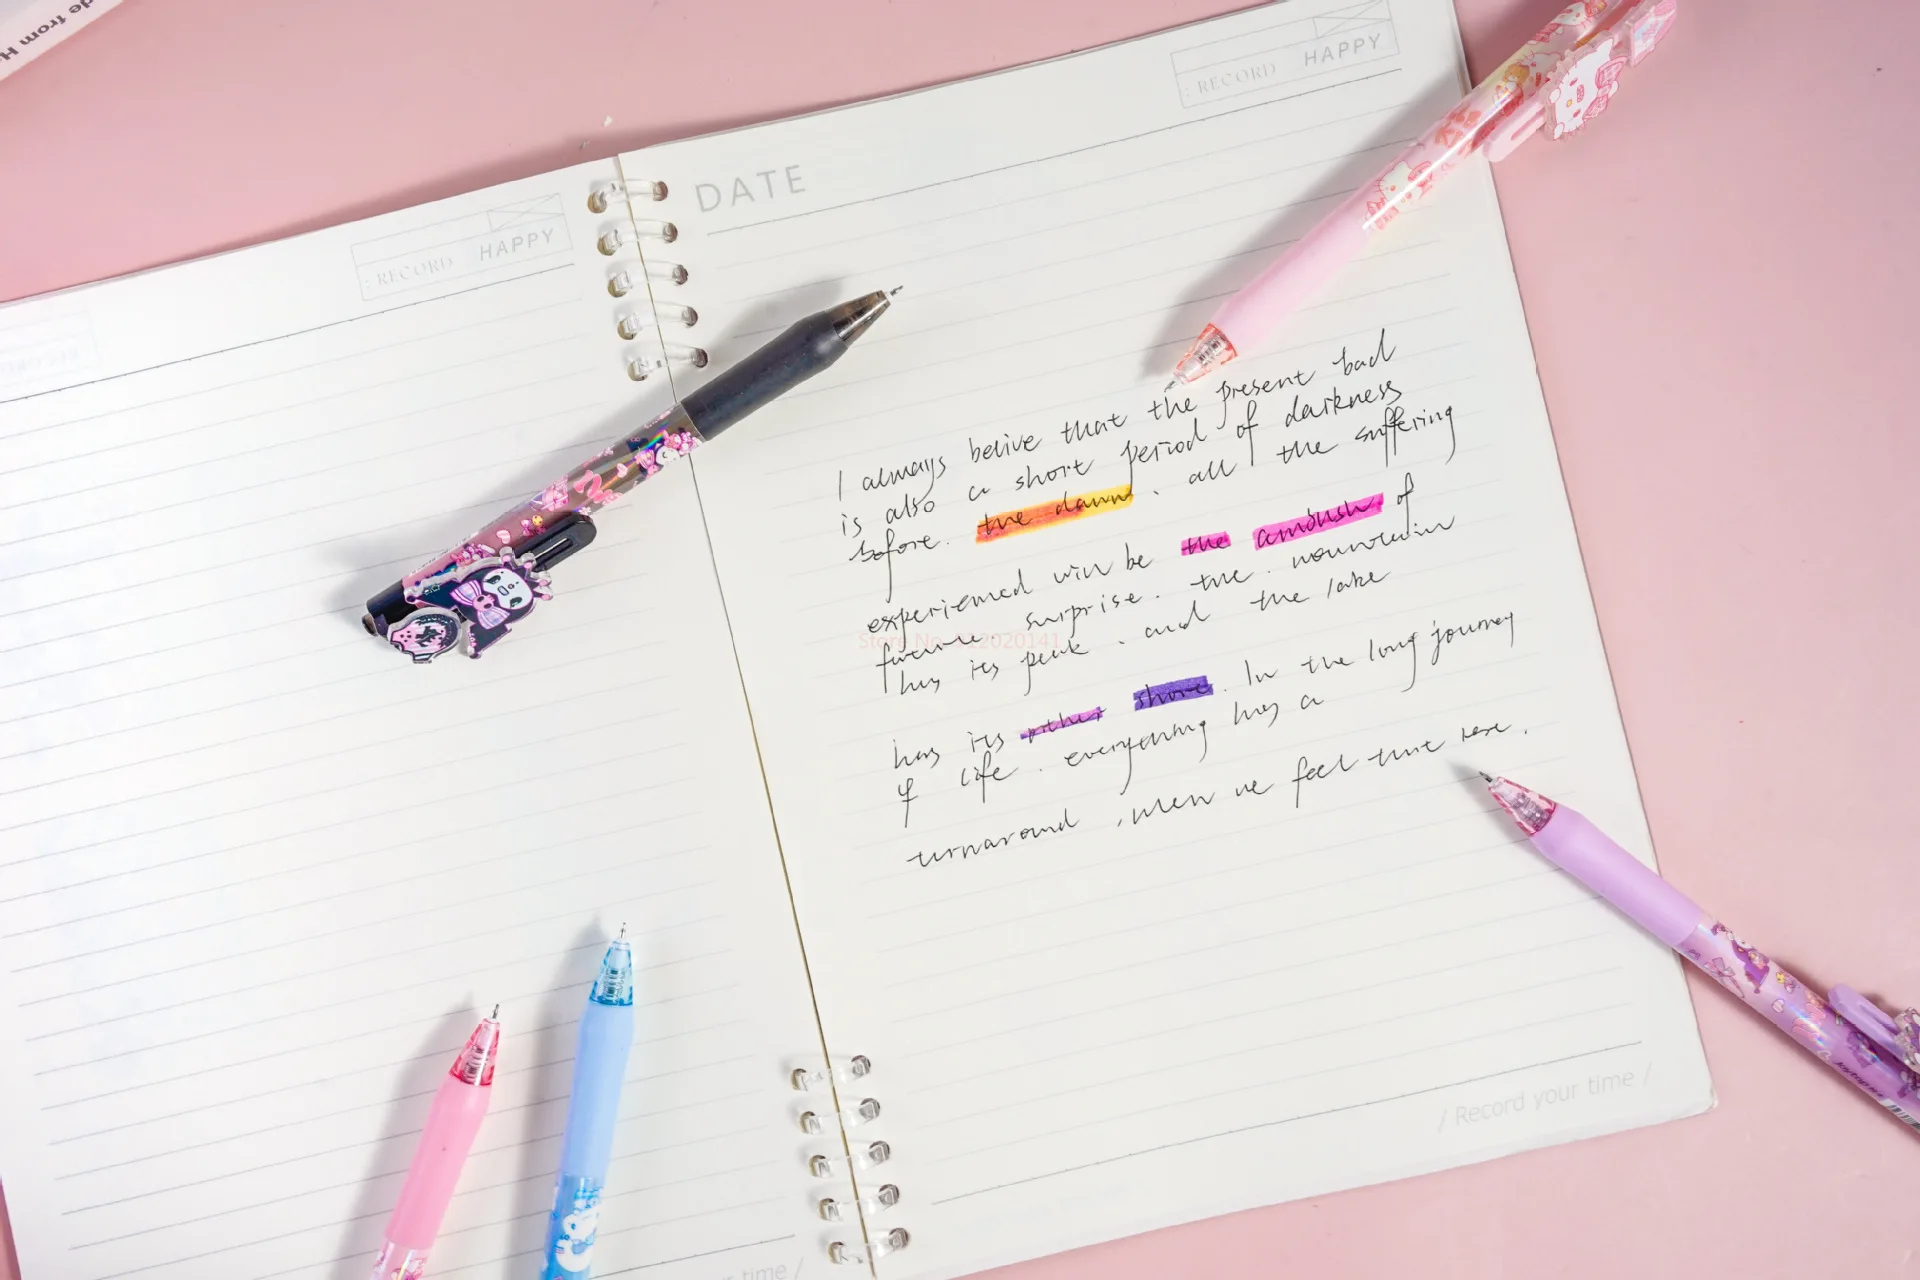 de from H
RECORD HAPPY
DATE
RECORD HAPPY
I always belive that the present bad
is also a short period of darkness
before. the dawn. all the suffering
experienced will be the ambush of
future surprise. the. mountain
has its peak. and the lake
has its other shore. In the long journey
of life. everything has a
turnaround, when we feel that
Store No. 912020141
/ Record your time /
r time /